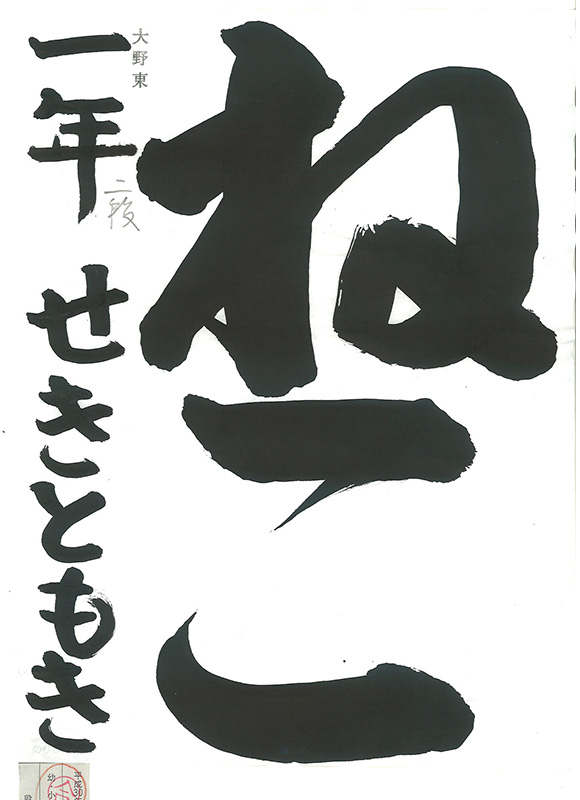 ねこ
大野東
一年 せきともき
二段
平成30年
幼・小